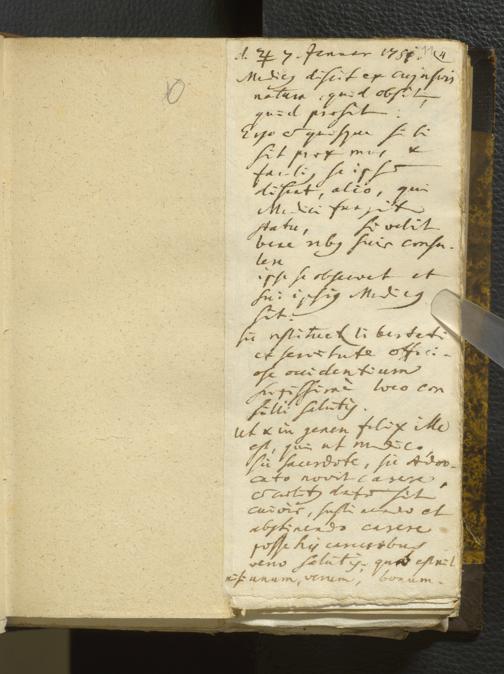 d. 24 7. Januar 175
4
Medicus discit ex cujusvis
natura, quid obsit,
quid prosit.
Ergo & quisque sibi
sit proximus &
facilis, se ipso
discat, alio, qui
Medici
statu, si velit
bene rebus suis consu-
lere
ipse se observet et
sui ipsius Medicus
sit.
sic restituet libertati
et servitute offici-
ose occidentium
loco con
silii salutis.
ut & in genere felix ille
est, qui ut medico
sic sacerdote, sic Advo-
cato novit carere,
datum sit
cuivis, sustinendo et
abstinendo carere
posse his carceribus
vero salutis, quod est nil
nisi unum, verum, bonum.